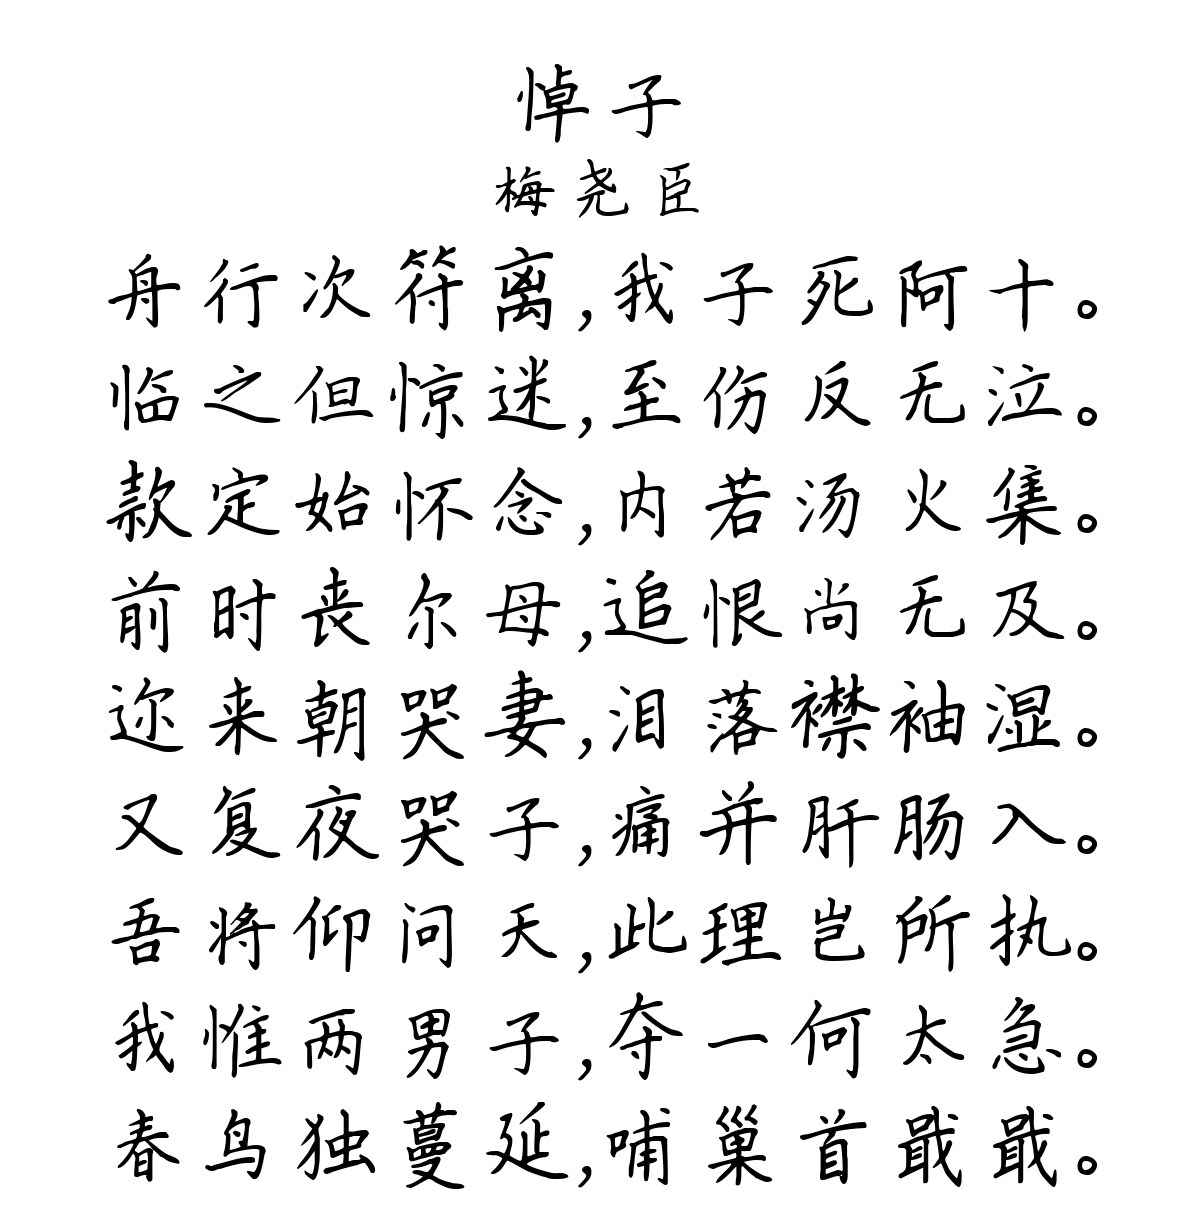 悼子
梅尧臣
舟行次符离,我子死阿十。
临之但惊迷,至伤反无泣。
款定始怀念,内若汤火集。
前时丧尔母,追恨尚无及。
迩来朝哭妻,泪落襟袖湿。
又复夜哭子,痛并肝肠入。
吾将仰问天,此理岂所执。
我惟两男子,夺一何太急。
春鸟独蔓延,哺巢首戢戢。